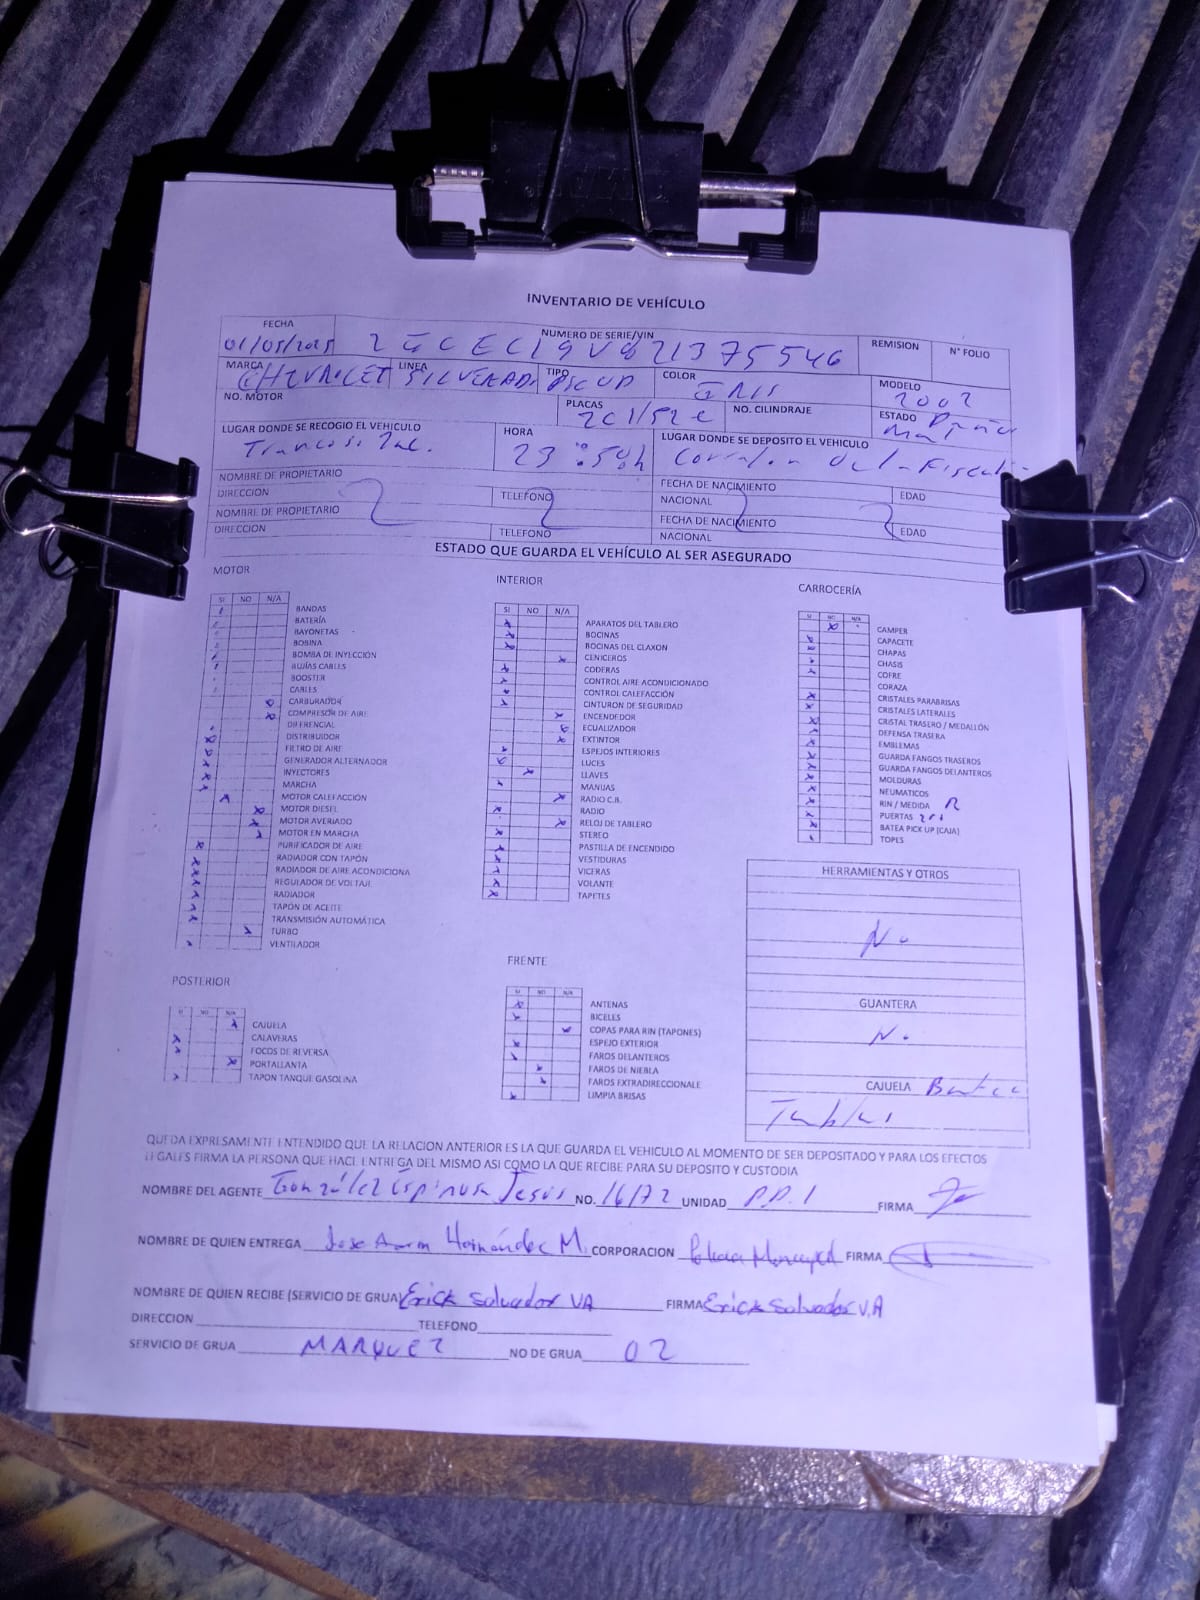 INVENTARIO DE VEHÍCULO
FECHA NUMERO DE SERIE/VIN REMISION N° FOLIO
01/05/2025
MARCA LINEA TIPO COLOR MODELO
CHEVROLET SILVERADO PICUP GRIS 2002
NO. MOTOR PLACAS NO. CILINDRAJE ESTADO
LUGAR DONDE SE RECOGIO EL VEHÍCULO HORA LUGAR DONDE SE DEPOSITO EL VEHÍCULO
Trancoso Zac. Corralon
NOMBRE DE PROPIETARIO FECHA DE NACIMIENTO
DIRECCION TELEFONO NACIONAL EDAD
NOMBRE DE PROPIETARIO FECHA DE NACIMIENTO
DIRECCION TELEFONO NACIONAL EDAD
ESTADO QUE GUARDA EL VEHÍCULO AL SER ASEGURADO
MOTOR
SI NO N/A
BANDAS
BATERÍA
BAYONETAS
BOBINA
BOMBA DE INYECCIÓN
BUJÍAS CABLES
BOOSTER
CABLES
CARBURADOR
COMPRESOR DE AIRE
DIFRENCIAL
DISTRIBUIDOR
FILTRO DE AIRE
GENERADOR ALTERNADOR
INYECTORES
MARCHA
MOTOR CALEFACCIÓN
MOTOR DIESEL
MOTOR AVERIADO
MOTOR EN MARCHA
PURIFICADOR DE AIRE
RADIADOR CON TAPÓN
RADIADOR DE AIRE ACONDICIONA
REGULADOR DE VOLTAJE
RADIADOR
TAPON DE ACEITE
TRANSMISIÓN AUTOMÁTICA
TURBO
VENTILADOR
INTERIOR
SI NO N/A
APARATOS DEL TABLERO
BOCINAS
BOCINAS DEL CLAXON
CENICEROS
CODERAS
CONTROL AIRE ACONDICIONADO
CONTROL CALEFACCIÓN
CINTURON DE SEGURIDAD
ENCENDEDOR
ECUALIZADOR
EXTINTOR
ESPEJOS INTERIORES
LUCES
LLAVES
MANIJAS
RADIO C.B.
RADIO
RELOJ DE TABLERO
STEREO
PASTILLA DE ENCENDIDO
VESTIDURAS
VICERAS
VOLANTE
TAPETES
CARROCERÍA
SI NO N/A
CAMPER
CAPACETE
CHAPAS
CHASIS
COFRE
CORAZA
CRISTALES PARABRISAS
CRISTALES LATERALES
CRISTAL TRASERO / MEDALLÓN
DEFENSA TRASERA
EMBLEMAS
GUARDA FANGOS TRASEROS
GUARDA FANGOS DELANTEROS
MOLDURAS
NEUMATICOS
RIN / MEDIDA
PUERTAS
BATEA PICK UP (CAJA)
TOPES
HERRAMIENTAS Y OTROS
No
GUANTERA
No
CAJUELA Batea
Tumblas
POSTERIOR
SI NO N/A
CAJUELA
CALAVERAS
FOCOS DE REVERSA
PORTALLANTA
TAPON TANQUE GASOLINA
FRENTE
SI NO N/A
ANTENAS
BICELES
COPAS PARA RIN (TAPONES)
ESPEJO EXTERIOR
FAROS DELANTEROS
FAROS DE NIEBLA
FAROS EXTRADIRECCIONALE
LIMPIA BRISAS
QUEDA EXPRESAMENTE ENTENDIDO QUE LA RELACION ANTERIOR ES LA QUE GUARDA EL VEHICULO AL MOMENTO DE SER DEPOSITADO Y PARA LOS EFECTOS
LEGALES FIRMA LA PERSONA QUE HACE ENTREGA DEL MISMO ASI COMO LA QUE RECIBE PARA SU DEPOSITO Y CUSTODIA
NOMBRE DEL AGENTE González Espinosa Jesús NO. 16172 UNIDAD P.P. 1 FIRMA
NOMBRE DE QUIEN ENTREGA Jose Aaron Hernández M. CORPORACION Policia Municipal FIRMA
NOMBRE DE QUIEN RECIBE (SERVICIO DE GRUA) Erick Salvador VA FIRMA Erick Salvador V.A
DIRECCION TELEFONO
SERVICIO DE GRUA MARQUEZ NO DE GRUA 02